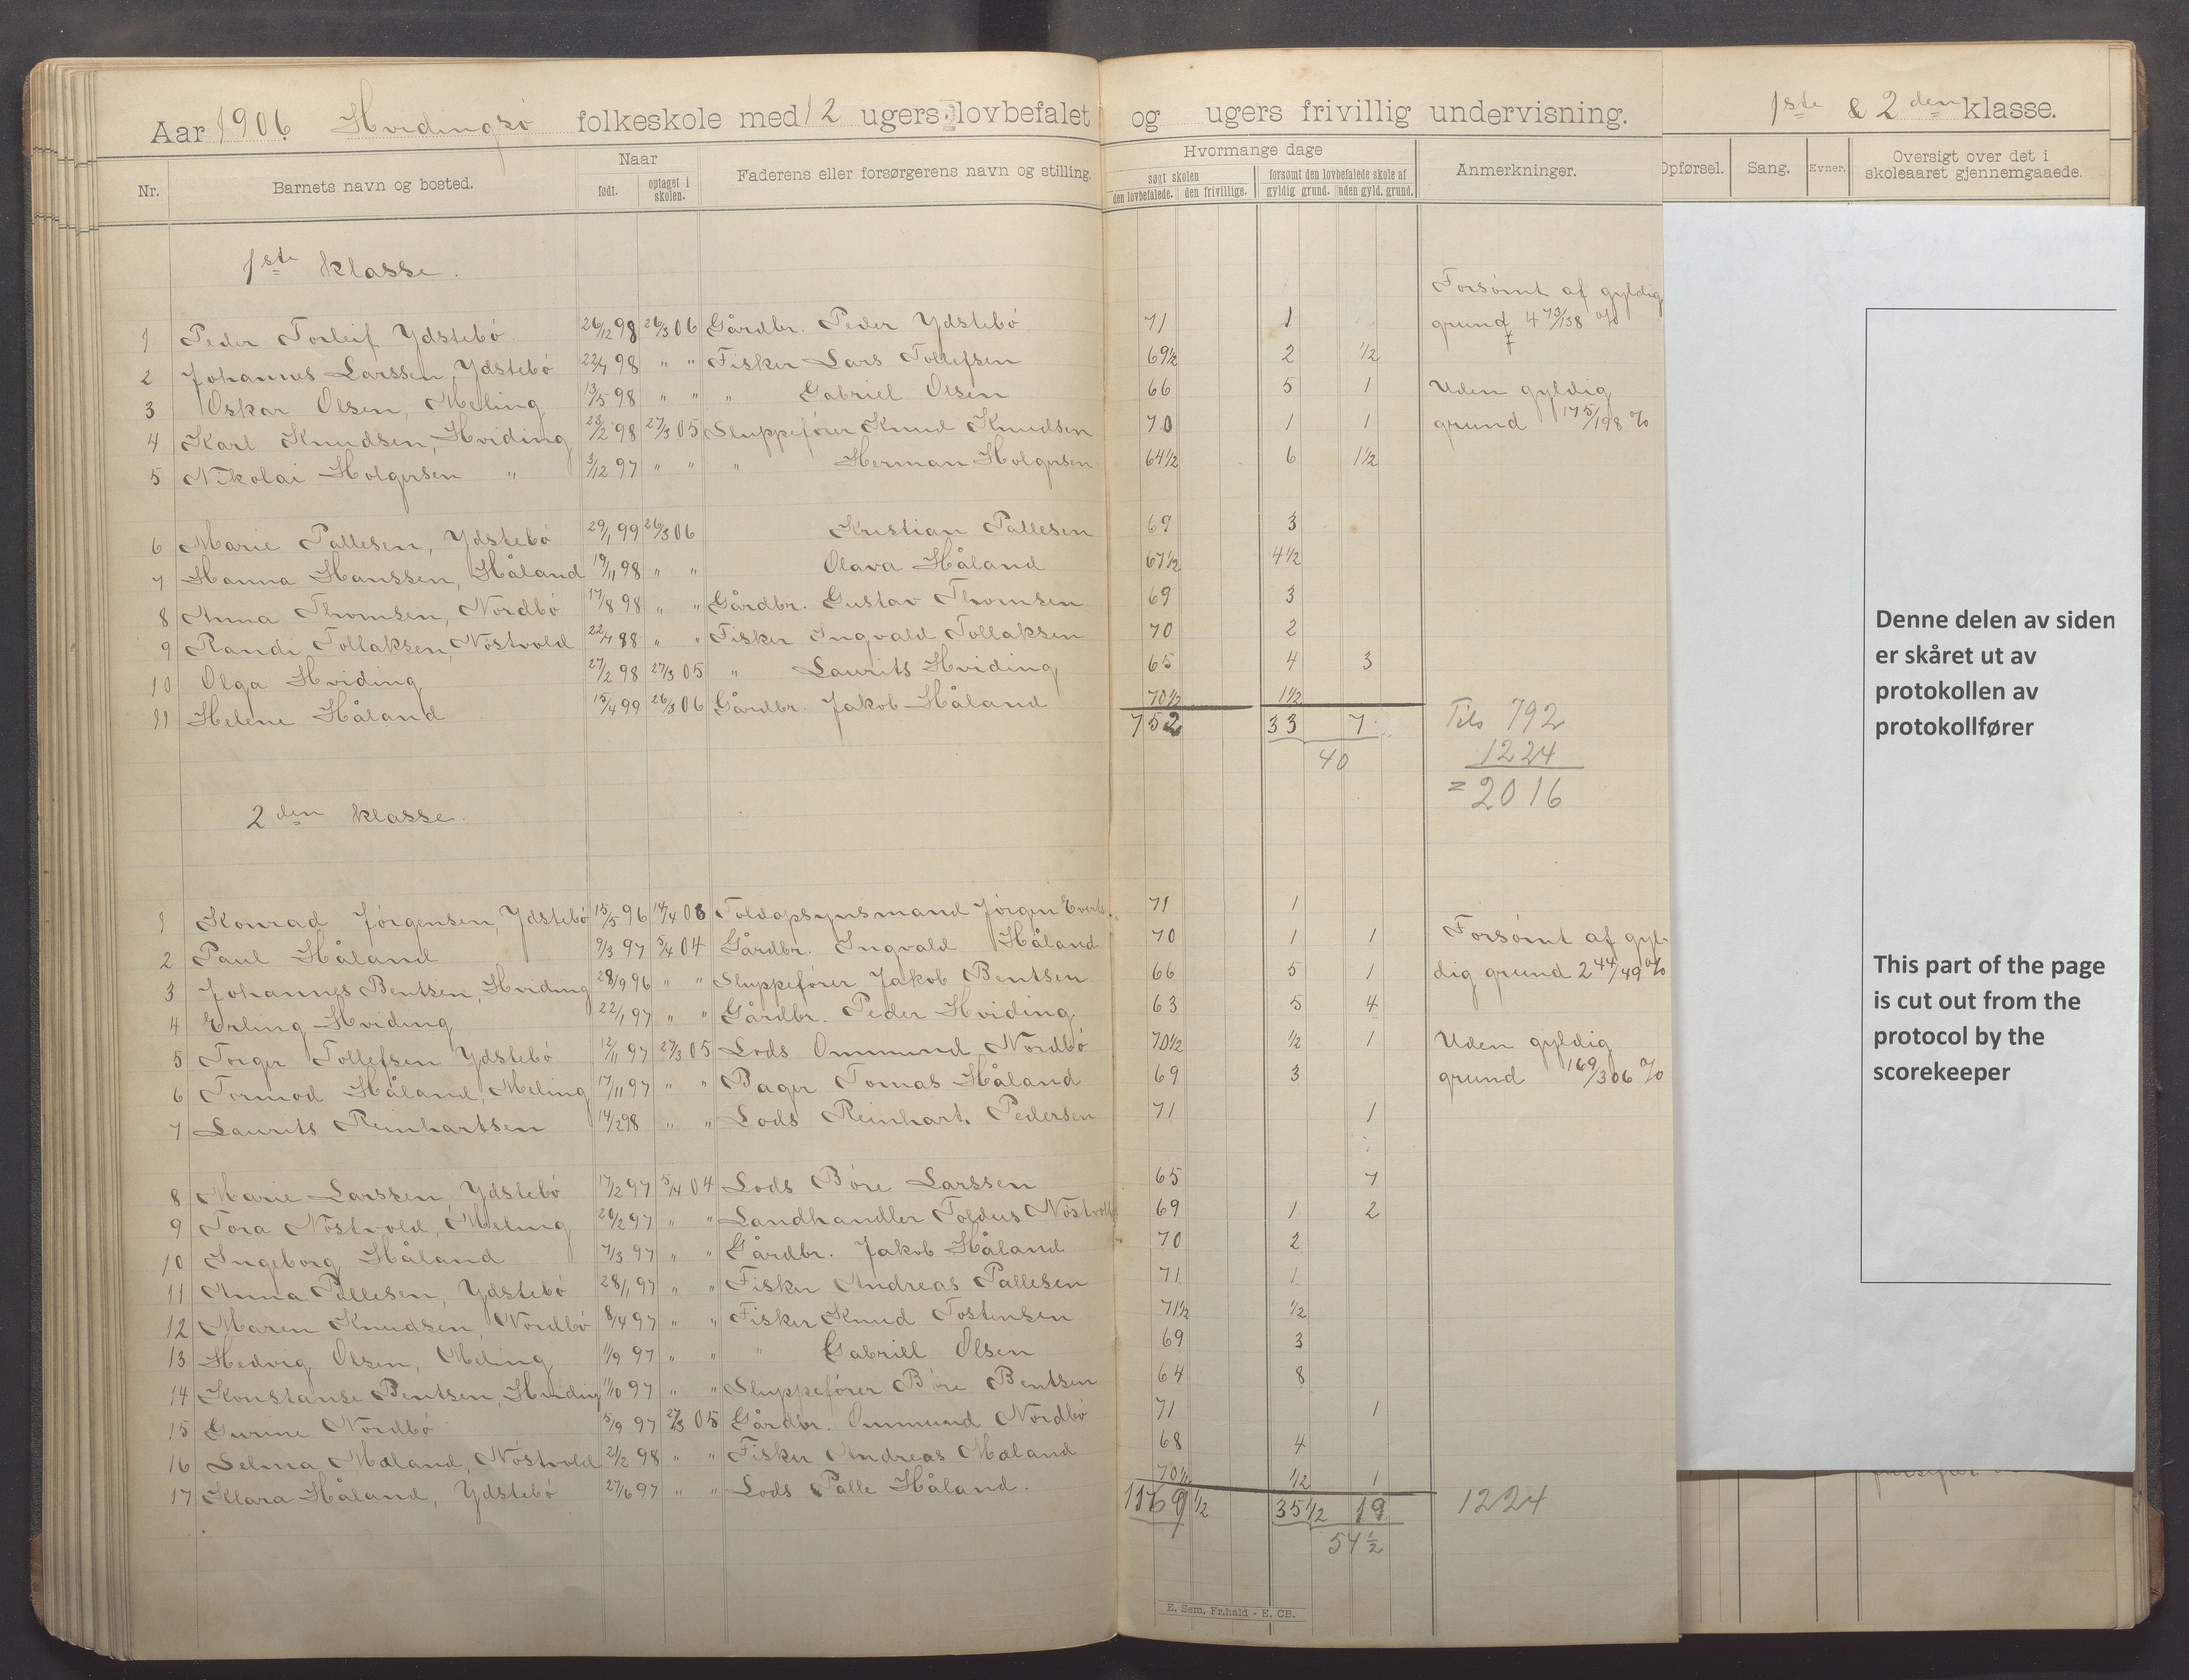 Aar 1906 Hvidingsö folkeskole med 12 ugers lovbefalet og ugers frivillig undervisning. 1ste & 2den klasse.
Nr. Barnets navn og bosted. Naar født. optaget i skolen. Faderens eller forsørgerens navn og stilling. Hvormange dage søgt skolen den lovbefalede. den frivillige. forsømt den lovbefalede skole af gyldig grund. uden gyld. grund. Anmerkninger. Opførsel. Sang. Evner. Oversigt over det i skoleaaret gjennemgaaede.
1ste klasse.
Forsömt af gyldig
1 Peder Torleif Ydstebö 26/12 98 26/3 06 Gårdbr. Peder Ydstebö 71 1 grund 4 73/138 %
2 Johannes Larssen, Ydstebö 22/7 98 " " Fisker Lars Tollefsen 69½ 2 ½
3 Oskar Olsen, Meling 13/5 98 " " " Gabriel Olsen 66 5 1 Uden gyldig
4 Karl Knudsen, Hviding 23/2 98 27/3 05 Sluppeförer Knud Knudsen 70 1 1 grund 175/198 %
5 Nikolai Holgersen " 3/12 97 " " " Herman Holgersen 64½ 6 1½
6 Marie Pallesen, Ydstebö 29/1 99 26/3 06 Kristian Pallesen 69 3
7 Hanna Hanssen, Håland 19/11 98 " " Olava Håland 67½ 4½
8 Anna Thomsen, Nordbö 17/8 98 " " Gårdbr. Gustav Thomsen 69 3
9 Randi Tollaksen, Nöstvold 22/7 88 " " Fisker Ingvald Tollaksen 70 2
10 Olga Hviding 27/2 98 27/3 05 " Laurits Hviding 65 4 3
11 Helene Håland 15/4 99 26/3 06 Gårdbr. Jakob Håland 70½ 1½
752 33 7 Tils 792
40 1224
= 2016
2den klasse.
1 Konrad Jörgensen, Ydstebö 15/5 96 14/4 03 Toldopsynsmand Jörgen Everts. 71 1
2 Paul Håland 9/3 97 5/4 04 Gårdbr. Ingvald Håland 70 1 1 Forsömt af gyl-
3 Johannes Bentsen, Hviding 28/9 96 " " Sluppeförer Jakob Bentsen 66 5 1 dig grund 2 44/49 %
4 Erling Hviding 22/1 97 " " Gårdbr. Peder Hviding 63 5 4
5 Torger Tollefsen Ydstebö 12/11 97 27/3 05 Lods Ommund Nordbö 70½ ½ 1 Uden gyldig
6 Tormod Håland, Meling 17/11 97 " " Bager Tomas Håland 69 3 grund 169/306 %
7 Laurits Reinhartsen 14/2 98 " " Lods Reinhart. Pedersen 71 1
8 Marie Larssen, Ydstebö 17/2 97 5/4 04 Lods Böre Larssen 65 7
9 Tora Nöstvold, Meling 20/2 97 " " Landhandler Toldus Nöstvold 69 1 2
10 Ingeborg Håland 7/3 97 " " Gårdbr. Jakob Håland 70 2
11 Anna Pallesen, Ydstebö 28/1 97 " " Fisker Andreas Pallesen 71 1
12 Maren Knudsen, Nordbö 8/4 97 " " Fisker Knud Tostensen 71½ ½
13 Hedvig Olsen, Meling 11/9 97 " " " Gabriel Olsen 69 3
14 Konstanse Bentsen, Hviding 1/10 97 " " Sluppeförer Böre Bentsen 64 8
15 Gurine Nordbö 5/9 97 27/3 05 Gårdbr. Ommund Nordbö 71 1
16 Selma Mæland, Nöstvold 2/2 98 " " Fisker Andreas Mæland 68 4
17 Klara Håland, Ydstebö 27/6 97 " " Lods Palle Håland. 70½ ½ 1
1169½ 35½ 19 1224
54½
E. Sem, Fr.hald - E. CB.
Denne delen av siden
er skåret ut av
protokollen av
protokollfører
This part of the page
is cut out from the
protocol by the
scorekeeper